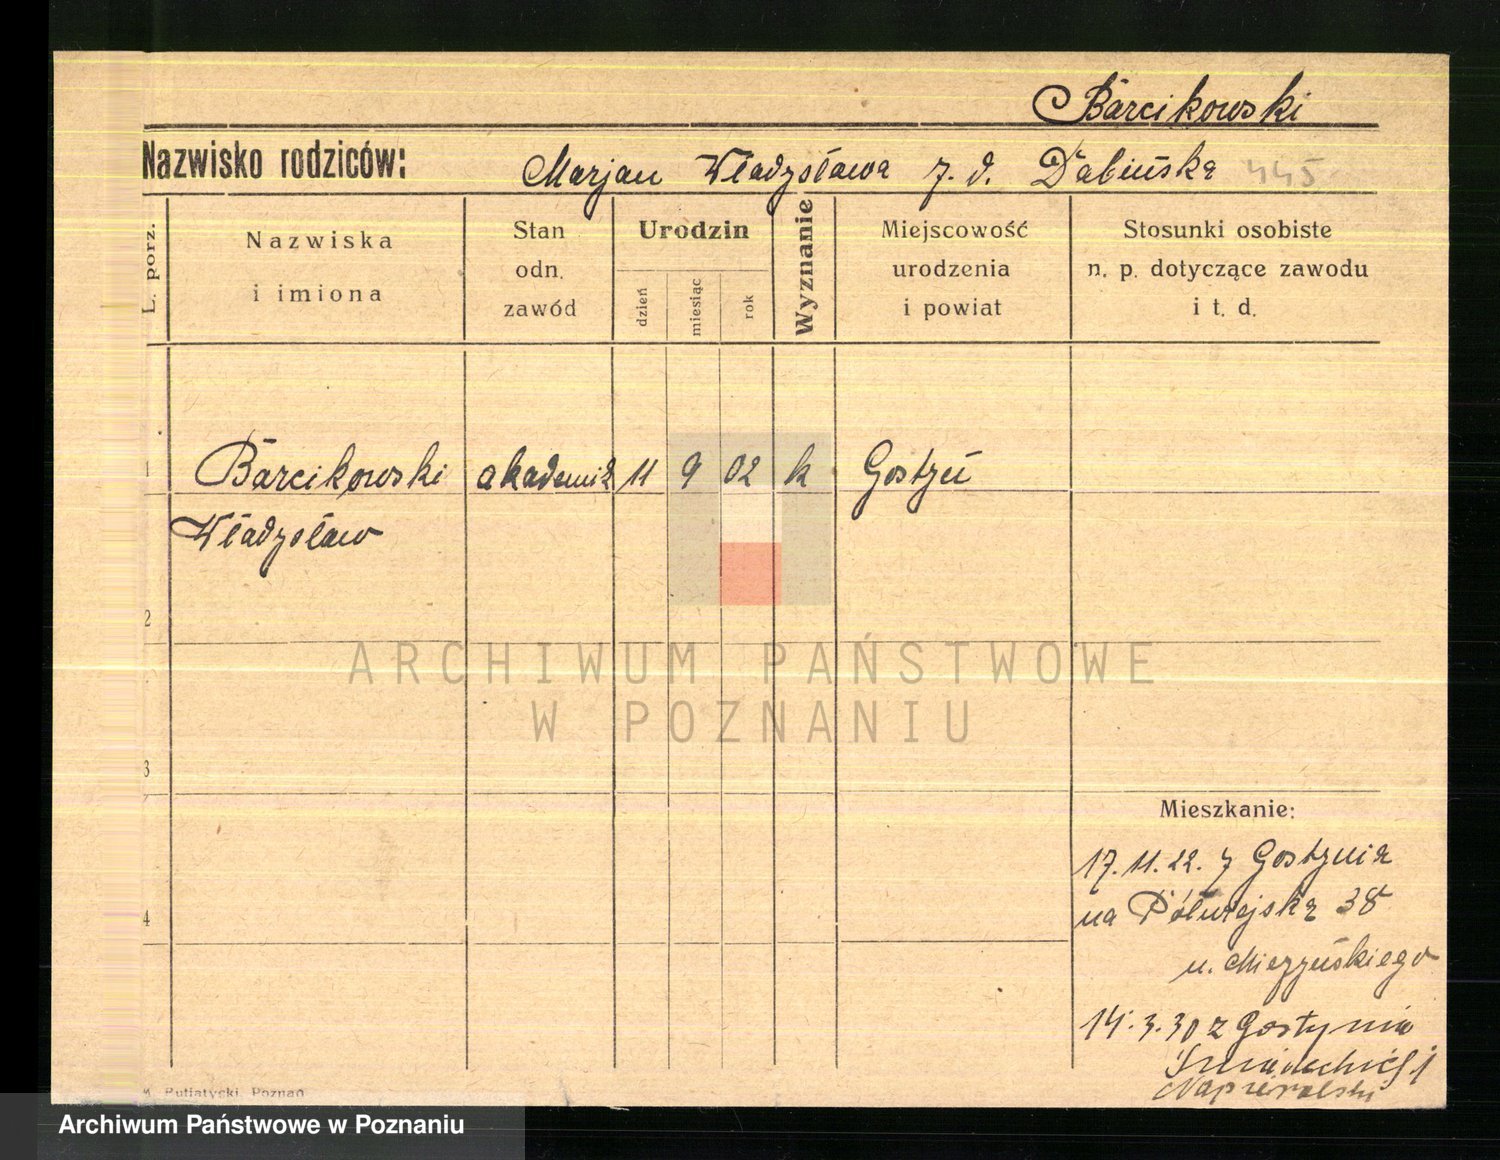 Barcikowski
Nazwisko rodziców: Marjan Władysława z. d. Dabińska 445
L. porz.
Nazwiska
i imiona
Stan
odn.
zawód
Urodzin
dzień
miesiąc
rok
Wyznanie
Miejscowość
urodzenia
i powiat
Stosunki osobiste
n. p. dotyczące zawodu
i t. d.
1 Barcikowski akademik 11 9 02 k Gostyń
Władysław
2
ARCHIWUM PAŃSTWOWE
W POZNANIU
3
Mieszkanie:
17. 11. 22. z Gostynia
na Półwiejską 38
4
u.
14. 3. 30 z Gostynia
Napieralski
M. Putiatycki, Poznań
Archiwum Państwowe w Poznaniu